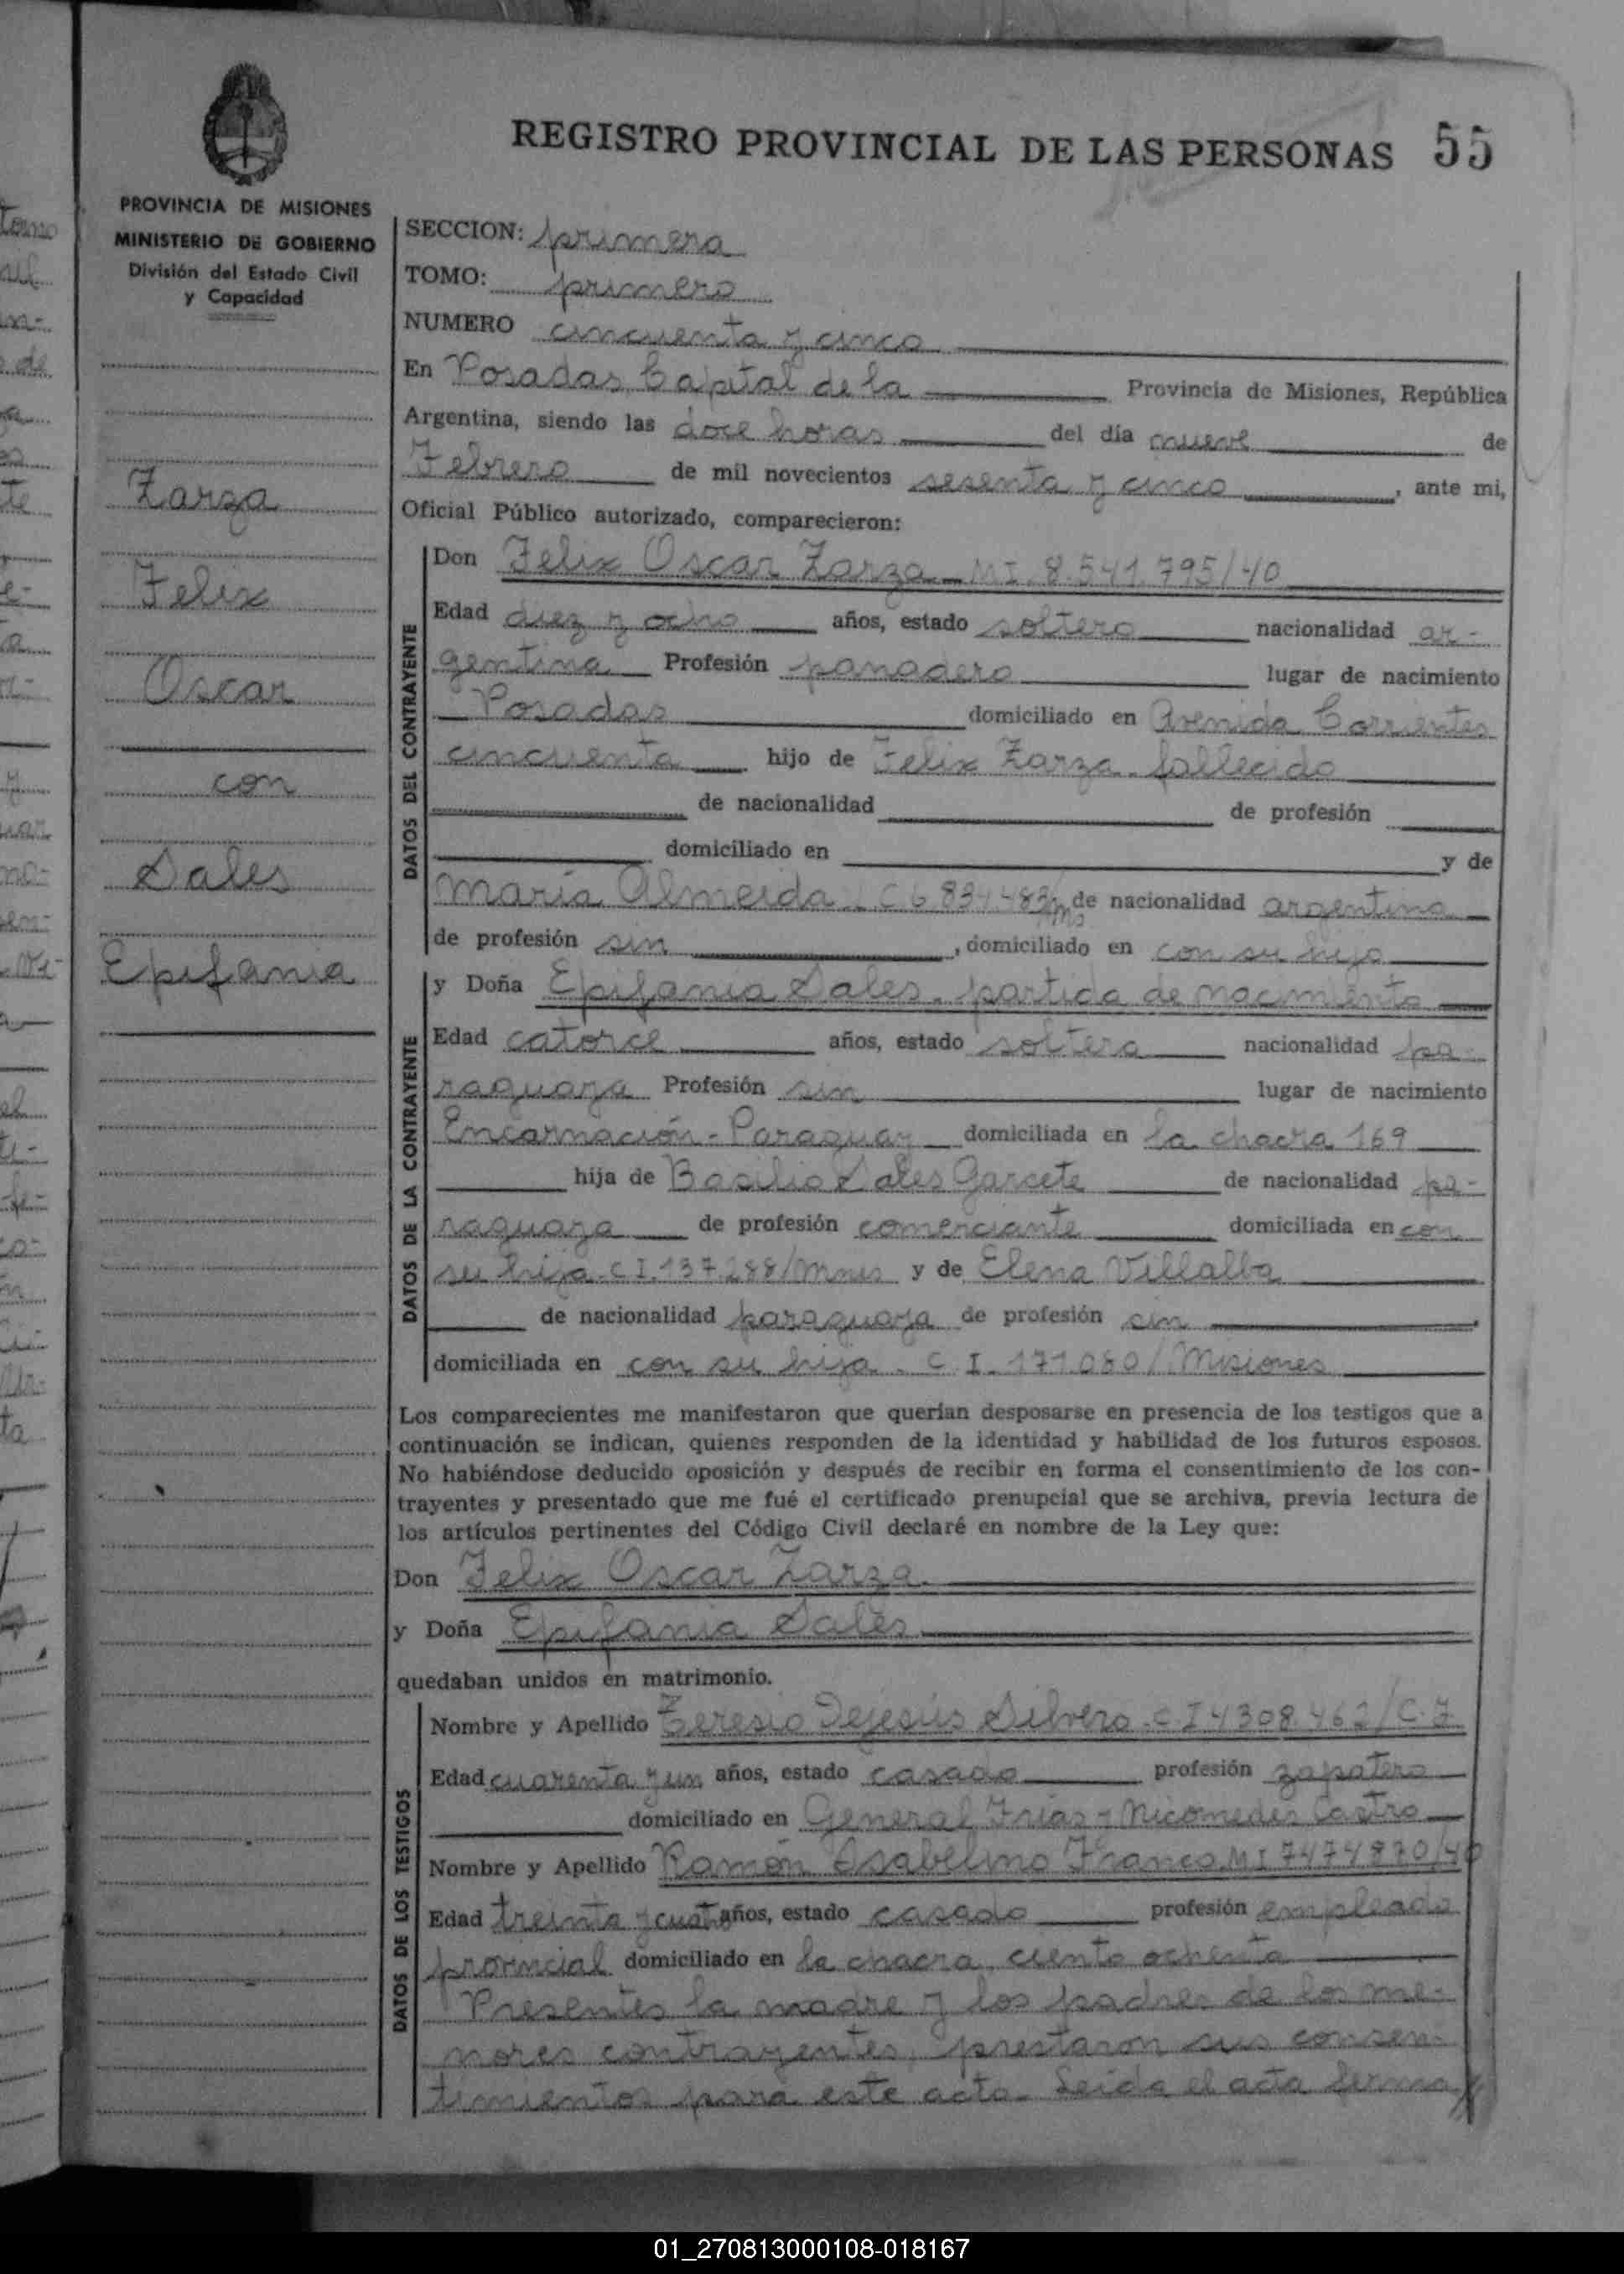 REGISTRO PROVINCIAL DE LAS PERSONAS 55
PROVINCIA DE MISIONES
MINISTERIO DE GOBIERNO
División del Estado Civil
y Capacidad
Zarza
Felix
Oscar
con
Sales
Epifania
SECCION: primera
TOMO: primero
NUMERO cincuenta y cinco
En Posadas, Capital de la Provincia de Misiones, República
Argentina, siendo las doce horas del día nueve de
Febrero de mil novecientos sesenta y cinco, ante mi,
Oficial Público autorizado, comparecieron:
DATOS DEL CONTRAYENTE
Don Felix Oscar Zarza - MI. 8.541.795/40
Edad diez y ocho años, estado soltero nacionalidad ar-
gentina Profesión panadero lugar de nacimiento
Posadas domiciliado en Avenida Corrientes
cincuenta hijo de Felix Zarza - fallecido
de nacionalidad de profesión
domiciliado en y de
María Almeida - C 6 834.483 de nacionalidad argentina
de profesión sin, domiciliado en con su hijo
DATOS DE LA CONTRAYENTE
y Doña Epifania Sales - partida de nacimiento
Edad catorce años, estado soltera nacionalidad pa-
raguaya Profesión sin lugar de nacimiento
Encarnación - Paraguay domiciliada en la chacra 169
hija de Basilio Sales Garcete de nacionalidad pa-
raguaya de profesión comerciante domiciliada en con
su hija - C I. 137.288/Mnes y de Elena Villalba
de nacionalidad paraguaya de profesión sin
domiciliada en con su hija - C. I. 171.080/Misiones
Los comparecientes me manifestaron que querían desposarse en presencia de los testigos que a
continuación se indican, quienes responden de la identidad y habilidad de los futuros esposos.
No habiéndose deducido oposición y después de recibir en forma el consentimiento de los con-
trayentes y presentado que me fué el certificado prenupcial que se archiva, previa lectura de
los artículos pertinentes del Código Civil declaré en nombre de la Ley que:
Don Felix Oscar Zarza
y Doña Epifania Sales
quedaban unidos en matrimonio.
DATOS DE LOS TESTIGOS
Nombre y Apellido Teresio Dejesús Silvero - C. I 4308.462/C.F.
Edad cuarenta y un años, estado casado profesión zapatero
domiciliado en General Frías y Nicomedes Castro
Nombre y Apellido Ramón Isabelino Franco. MI 7474870/40
Edad treinta y cuatro años, estado casado profesión empleado
provincial domiciliado en la chacra ciento ochenta
Presentes la madre y los padres de los me-
nores contrayentes, prestaron sus consen-
timientos para este acto - Leida el acta firma
01_270813000108-018167